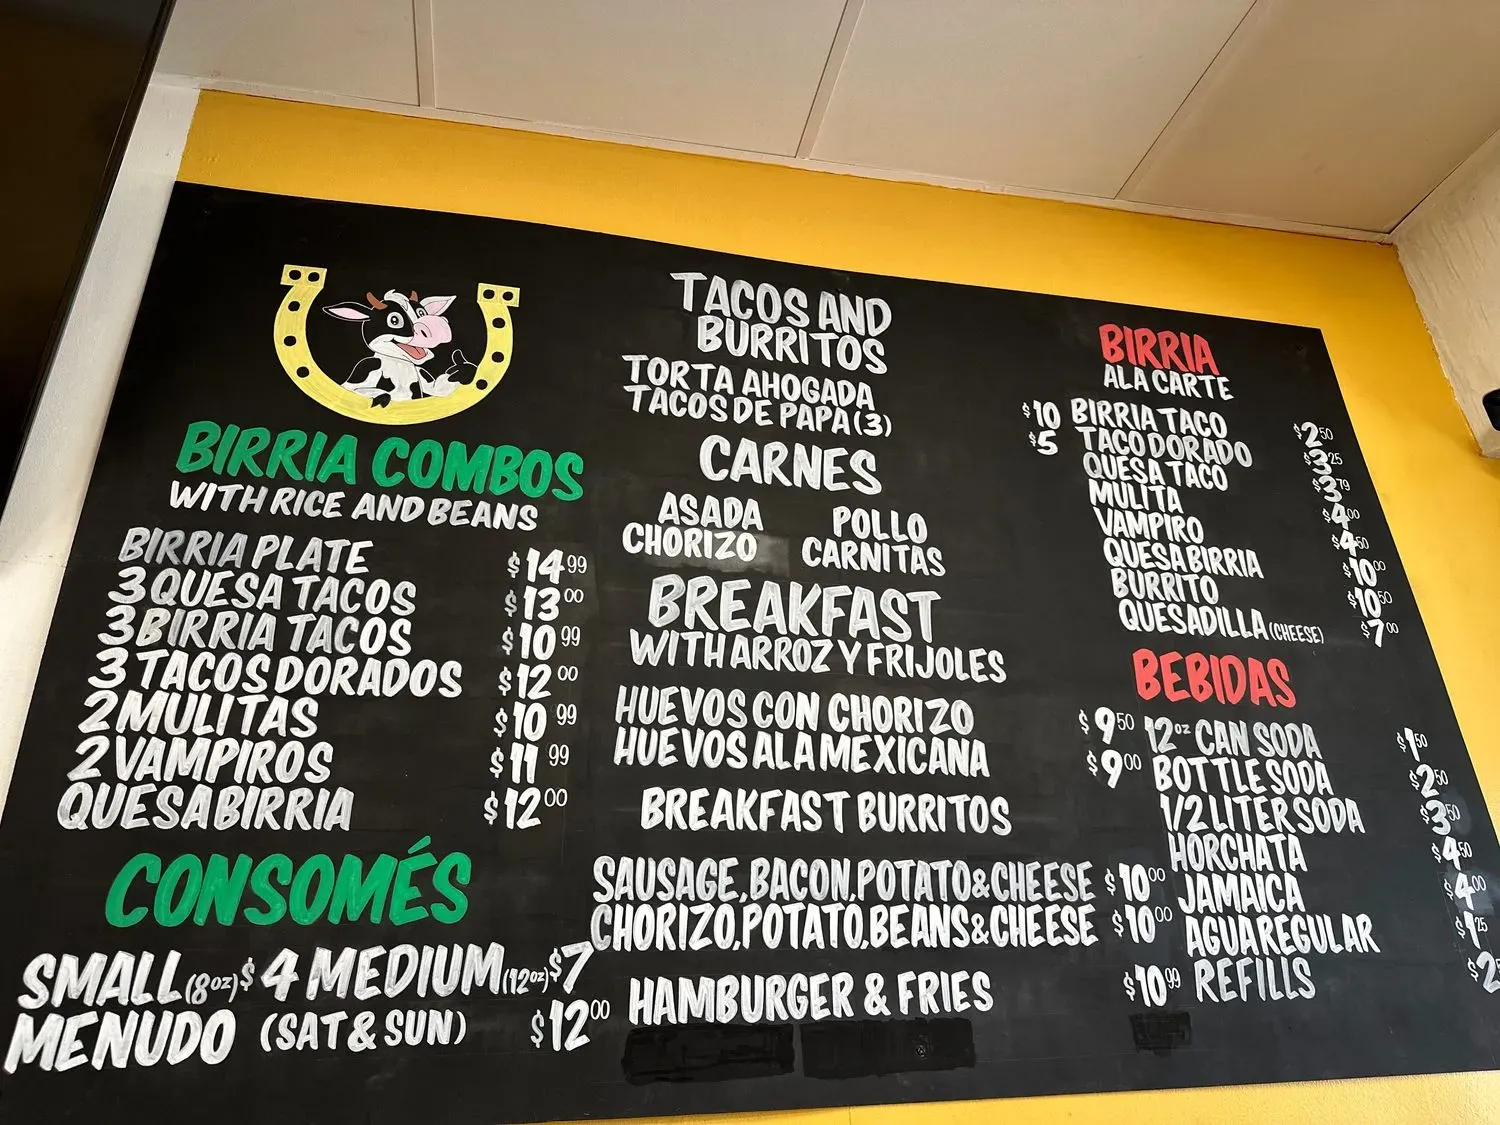 BIRRIA COMBOS
WITH RICE AND BEANS
BIRRIA PLATE $14.99
3 QUESA TACOS $13.00
3 BIRRIA TACOS $10.99
3 TACOS DORADOS $12.00
2 MULITAS $10.99
2 VAMPIROS $11.99
QUESABIRRIA $12.00
CONSOMÉS
SMALL (8oz) $4 MEDIUM (12oz) $7
MENUDO (SAT & SUN) $12.00
TACOS AND
BURRITOS
TORTA AHOGADA $10
TACOS DE PAPA (3) $5
CARNES
ASADA POLLO
CHORIZO CARNITAS
BREAKFAST
WITH ARROZ Y FRIJOLES
HUEVOS CON CHORIZO $9.50
HUEVOS ALA MEXICANA $9.00
BREAKFAST BURRITOS
SAUSAGE, BACON, POTATO & CHEESE $10.00
CHORIZO, POTATO, BEANS & CHEESE $10.00
HAMBURGER & FRIES $10.99
BIRRIA
ALA CARTE
BIRRIA TACO $2.50
TACO DORADO $3.25
QUESA TACO $3.79
MULITA $4.00
VAMPIRO $4.50
QUESABIRRIA $10.00
BURRITO $10.50
QUESADILLA (CHEESE) $7.00
BEBIDAS
12oz CAN SODA $1.50
BOTTLE SODA $2.50
1/2 LITER SODA $3.50
HORCHATA $4.50
JAMAICA $4.00
AGUA REGULAR $1.25
REFILLS $2